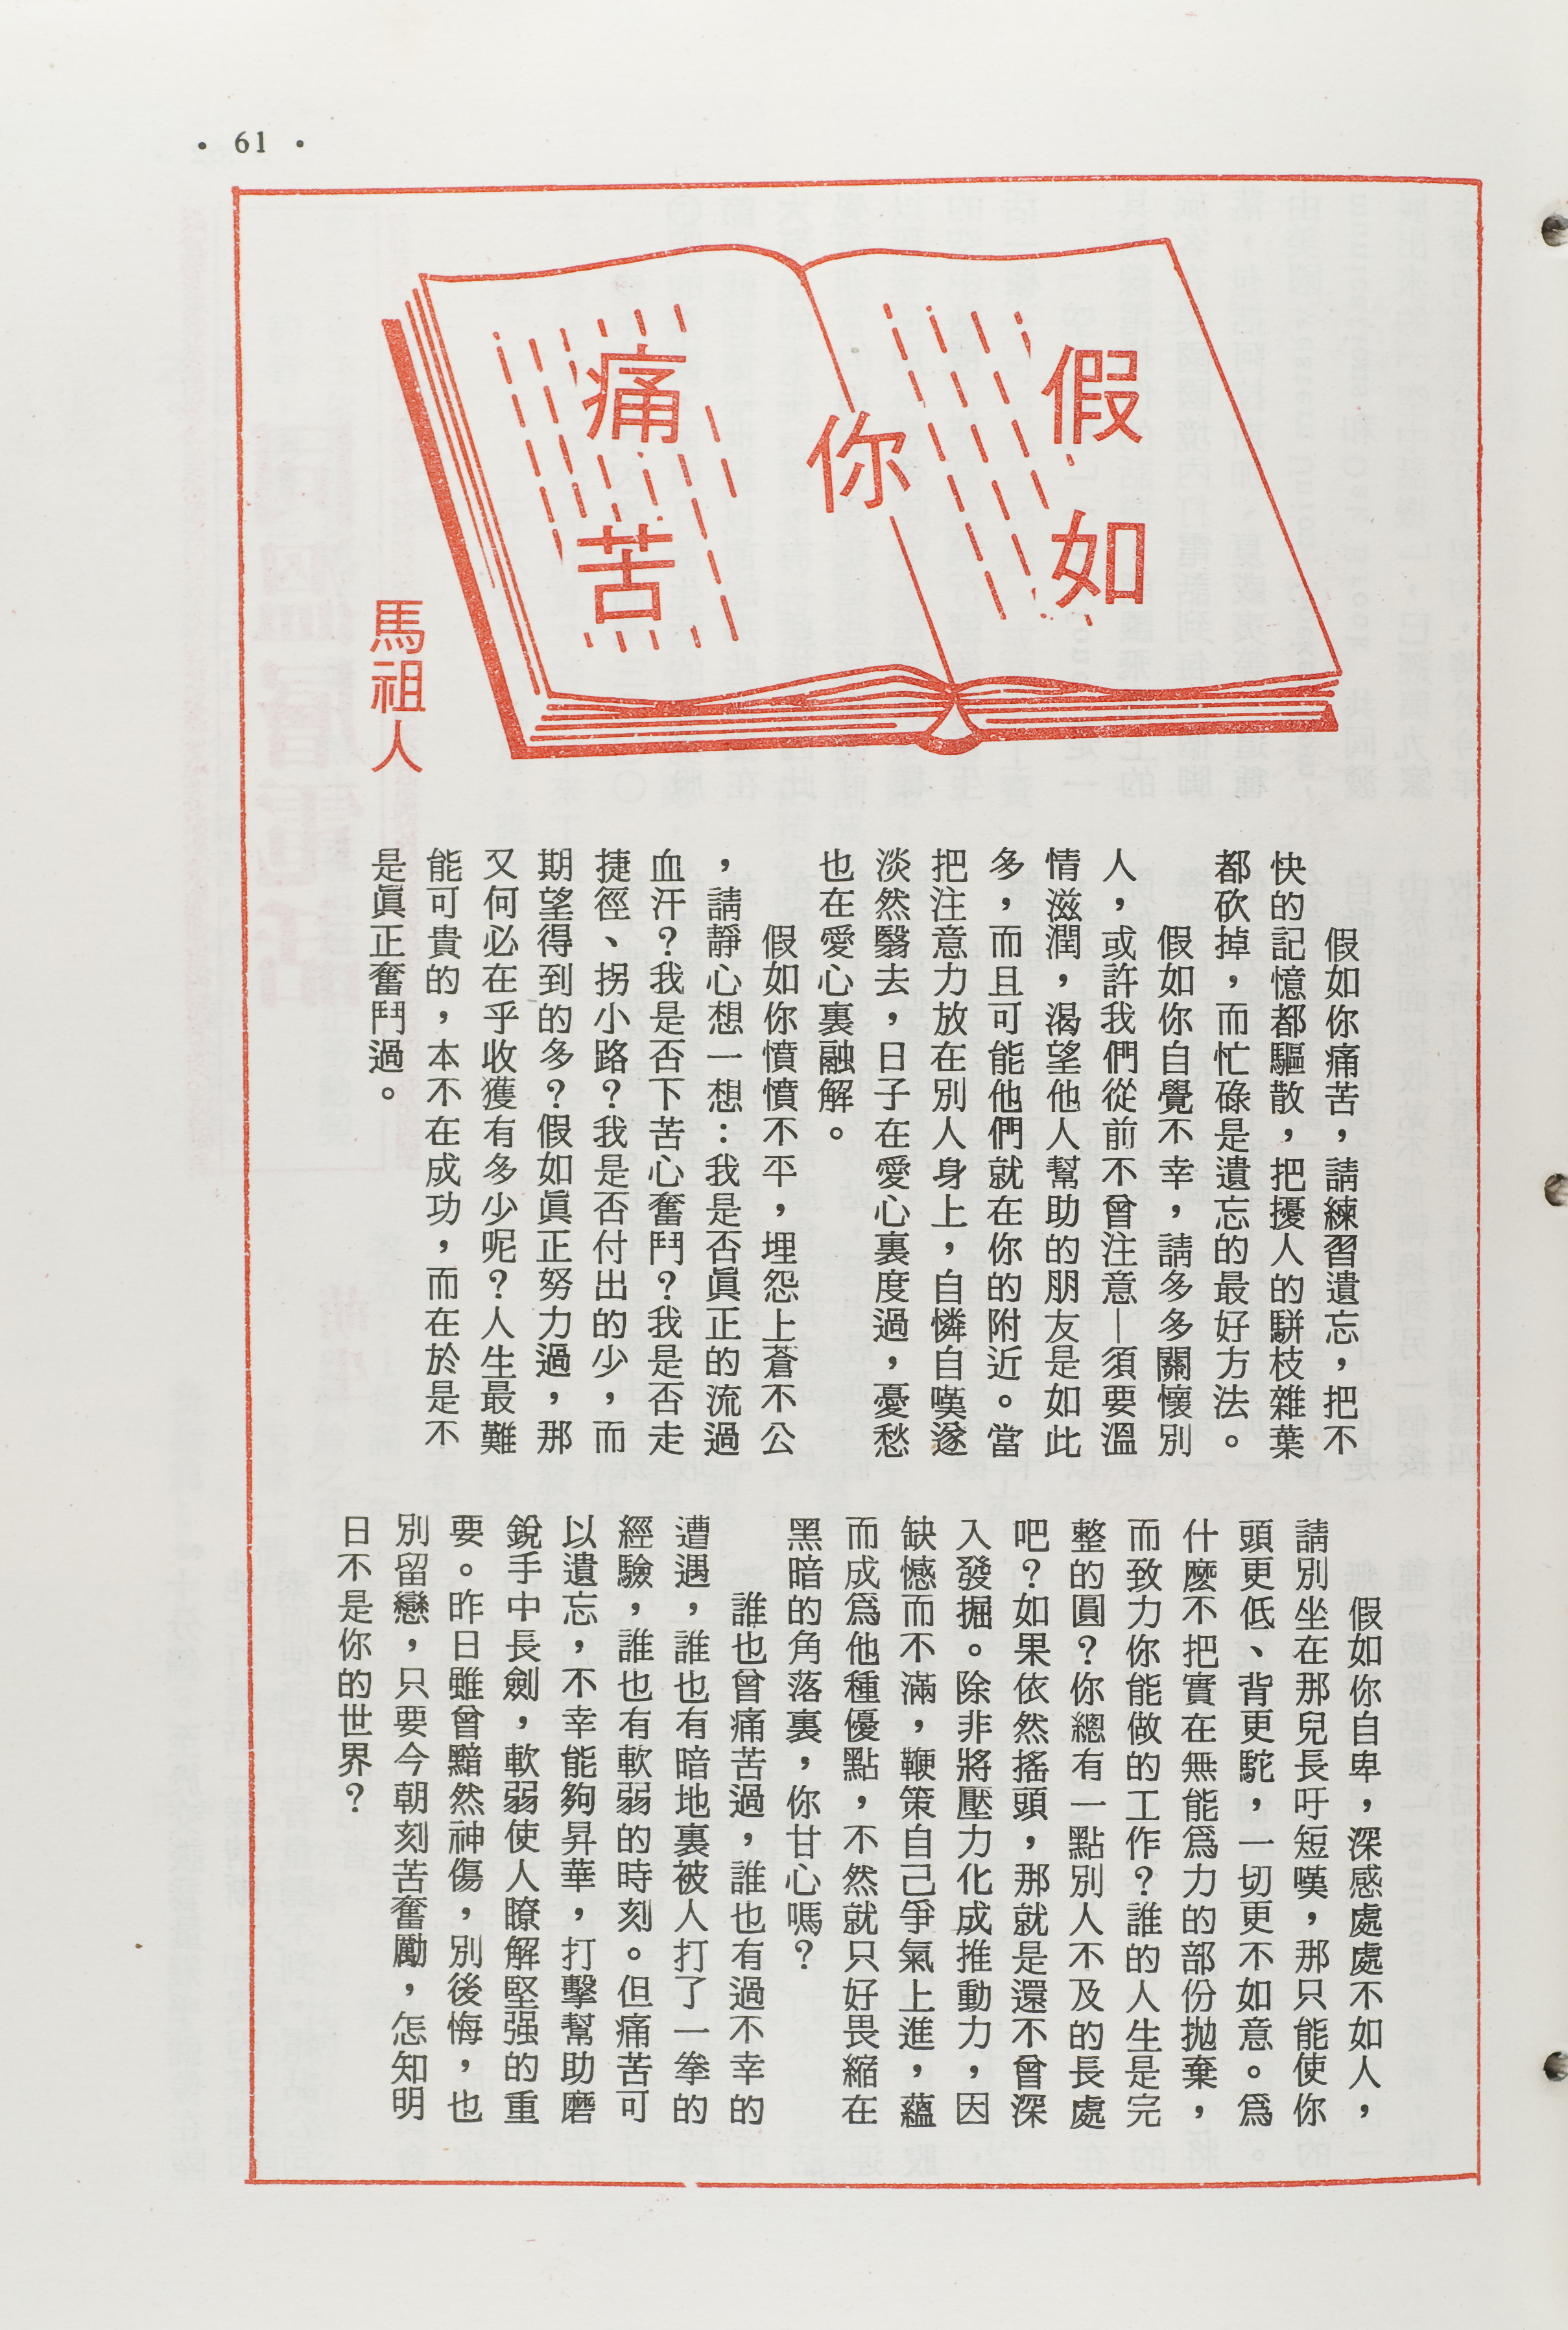 • 61 •
假如
你
痛苦
馬祖人
假如你痛苦，請練習遺忘，把不
快的記憶都驅散，把擾人的駢枝雜葉
都砍掉，而忙碌是遺忘的最好方法。
假如你自覺不幸，請多多關懷別
人，或許我們從前不曾注意—須要溫
情滋潤，渴望他人幫助的朋友是如此
多，而且可能他們就在你的附近。當
把注意力放在別人身上，自憐自嘆遂
淡然翳去，日子在愛心裏度過，憂愁
也在愛心裏融解。
假如你憤憤不平，埋怨上蒼不公
，請靜心想一想：我是否眞正的流過
血汗？我是否下苦心奮鬥？我是否走
捷徑、拐小路？我是否付出的少，而
期望得到的多？假如眞正努力過，那
又何必在乎收獲有多少呢？人生最難
能可貴的，本不在成功，而在於是不
是眞正奮鬥過。
假如你自卑，深感處處不如人，
請別坐在那兒長吁短嘆，那只能使你
頭更低、背更駝，一切更不如意。爲
什麽不把實在無能爲力的部份拋棄，
而致力你能做的工作？誰的人生是完
整的圓？你總有一點別人不及的長處
吧？如果依然搖頭，那就是還不曾深
入發掘。除非將壓力化成推動力，因
缺憾而不滿，鞭策自己爭氣上進，蘊
而成爲他種優點，不然就只好畏縮在
黑暗的角落裏，你甘心嗎？
誰也曾痛苦過，誰也有過不幸的
遭遇，誰也有暗地裏被人打了一拳的
經驗，誰也有軟弱的時刻。但痛苦可
以遺忘，不幸能夠昇華，打擊幫助磨
銳手中長劍，軟弱使人瞭解堅强的重
要。昨日雖曾黯然神傷，別後悔，也
別留戀，只要今朝刻苦奮勵，怎知明
日不是你的世界？